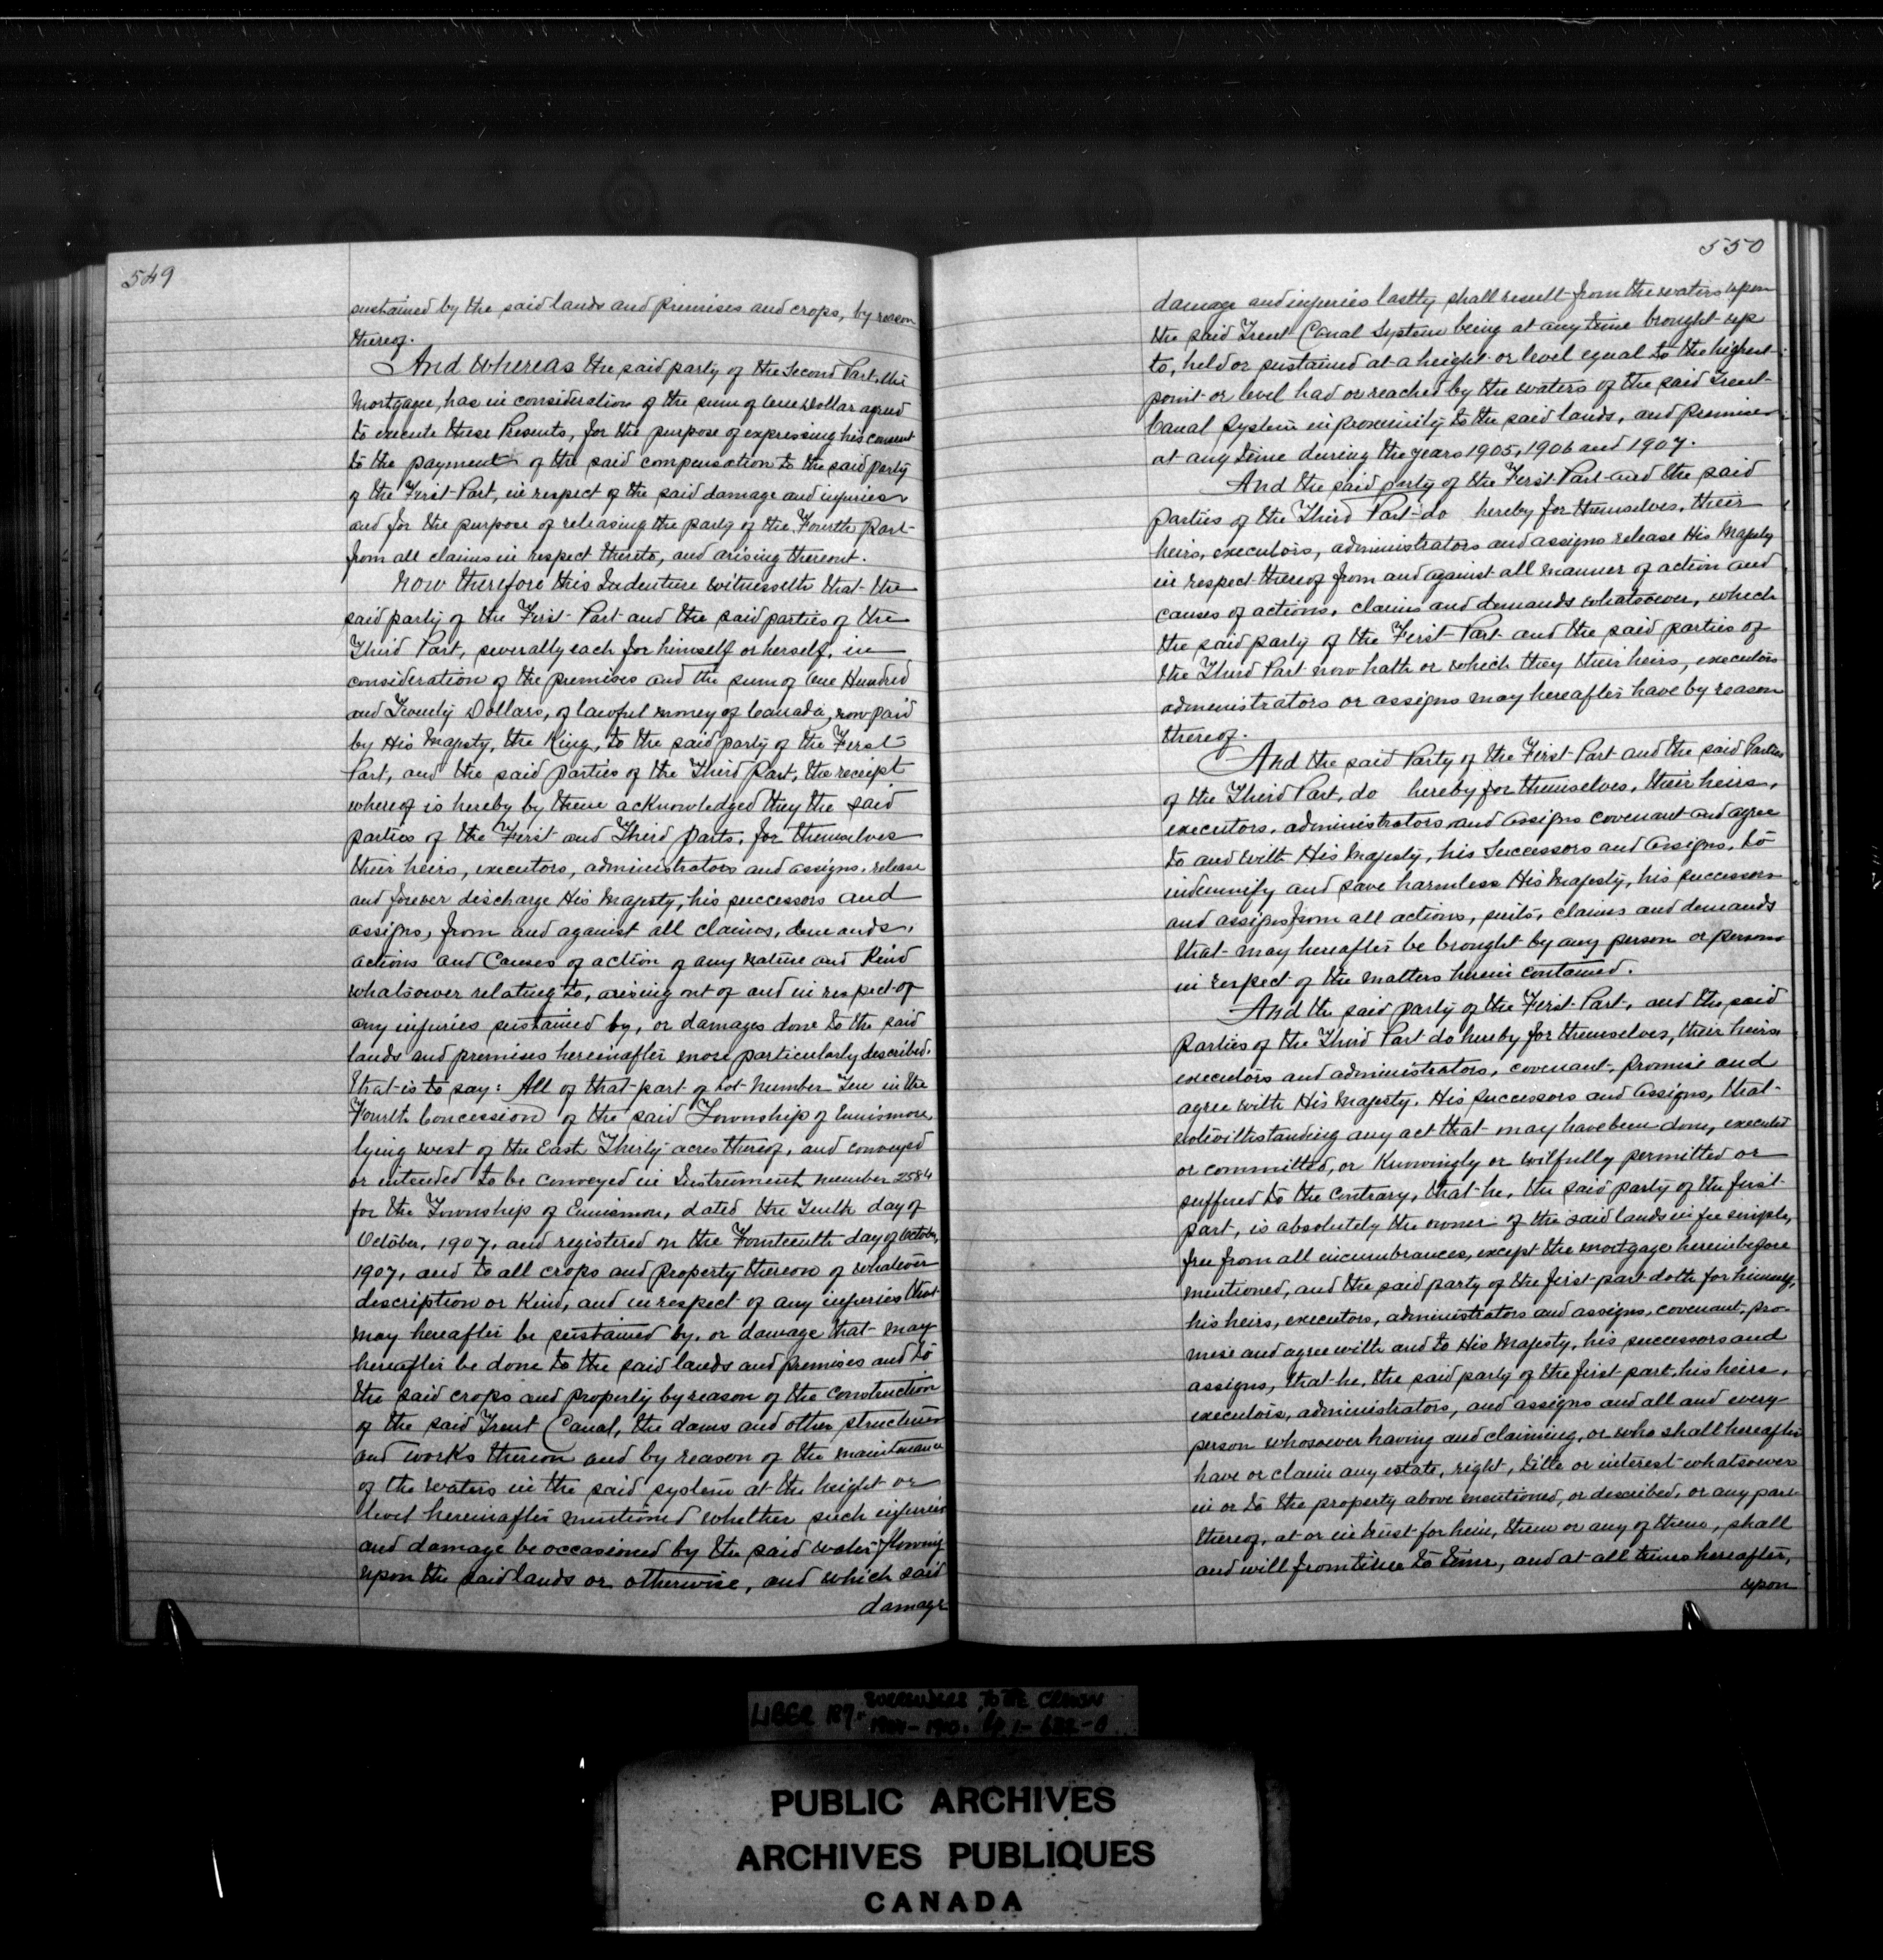 549
sustained by the said lands and premises and crops, by reason
thereof.
And Whereas the said party of the Second Part, the
Mortgagee, has in consideration of the sum of One Dollar agreed
to execute these Presents, for the purpose of expressing his consent
to the payment of the said compensation to the said party
of the First Part, in respect of the said damage and injuries
and for the purpose of releasing the party of the Fourth part
from all claims in respect thereto, and arising thereout.
Now therefore this Indenture witnesseth that the
said party of the First Part and the said parties of the
Third Part, severally each for himself or herself, in
consideration of the premises and the sum of One Hundred
and Twenty Dollars, of lawful money of Canada, now paid
by His Majesty, the King, to the said party of the First
Part, and the said parties of the Third Part, the receipt
whereof is hereby by them acknowledged they the said
parties of the First and Third parts, for themselves
their heirs, executors, administrators and assigns, release
and forever discharge His Majesty, his successors and
assigns, from and against all claims, demands,
actions and Causes of action of any nature and Kind
whatsoever relating to, arising out of and in respect of
any injuries sustained by, or damages done to the said
lands and premises hereinafter more particularly described,
that is to say: All of that part of Lot Number Ten in the
Fourth Concession of the said Township of Ennismore,
lying west of the East Thirty acres thereof, and conveyed
or intended to be conveyed in Instrument number 2584
for the Township of Ennismore, dated the Tenth day of
October, 1907, and registered on the Fourteenth day of October,
1907, and to all crops and property thereon of whatever
description or Kind, and in respect of any injuries that
may hereafter be sustained by, or damage that may
hereafter be done to the said lands and premises and to
the said crops and property by reason of the construction
of the said Trent Canal, the dams and other structures
and works thereon and by reason of the maintenance
of the waters in the said system at the height or
level hereinafter mentioned whether such injuries
and damage be occasioned by the said water flowing
upon the said lands or otherwise, and which said
damage
550
damage and injuries lastly shall result from the waters upon
the said Trent Canal System being at any time brought up
to, held or sustained at a height or level equal to the highest
point or level had or reached by the waters of the said Trent
Canal System in proximity to the said lands, and premises
at any time during the years 1905, 1906 and 1907.
And the said party of the First Part and the said
parties of the Third Part do hereby for themselves, their
heirs, executors, administrators and assigns release His Majesty
in respect thereof from and against all manner of action and
causes of actions, claims and demands whatsoever, which
the said party of the First Part and the said parties of
the Third Part now hath or which they their heirs, executors
administrators or assigns may hereafter have by reason
thereof.
And the said Party of the First Part and the said Parties
of the Third Part, do hereby for themselves, their heirs,
executors, administrators and assigns covenant and agree
to and with His Majesty, his Successors and Assigns, to
indemnify and save harmless His Majesty, his successors
and assigns from all actions, suits, claims and demands
that may hereafter be brought by any person or persons
in respect of the matters herein contained.
And the said party of the First Part, and the said
Parties of the Third Part do hereby for themselves, their heirs
executors and administrators, covenant, promise and
agree with His Majesty, His Successors and Assigns, that
notwithstanding any act that may have been done, executed
or committed, or Knowingly or wilfully permitted or
suffered to the contrary, that he, the said party of the first
part, is absolutely the owner of the said lands in fee simple,
free from all incumbrances, except the mortgage hereinbefore
mentioned, and the said party of the first part doth for himself,
his heirs, executors, administrators and assigns, covenant, pro-
mise and agree with and to His Majesty, his successors and
assigns, that he, the said party of the first part, his heirs,
executors, administrators, and assigns and all and every
person whosoever having and claiming, or who shall hereafter
have or claim any estate, right, title or interest whatsoever
in or to the property above mentioned, or described, or any part
thereof, at or in trust for him, them or any of them, shall
and will from time to time, and at all times hereafter,
upon
LIBER 187. SURRENDERS TO THE CROWN
PUBLIC ARCHIVES
ARCHIVES PUBLIQUES
CANADA